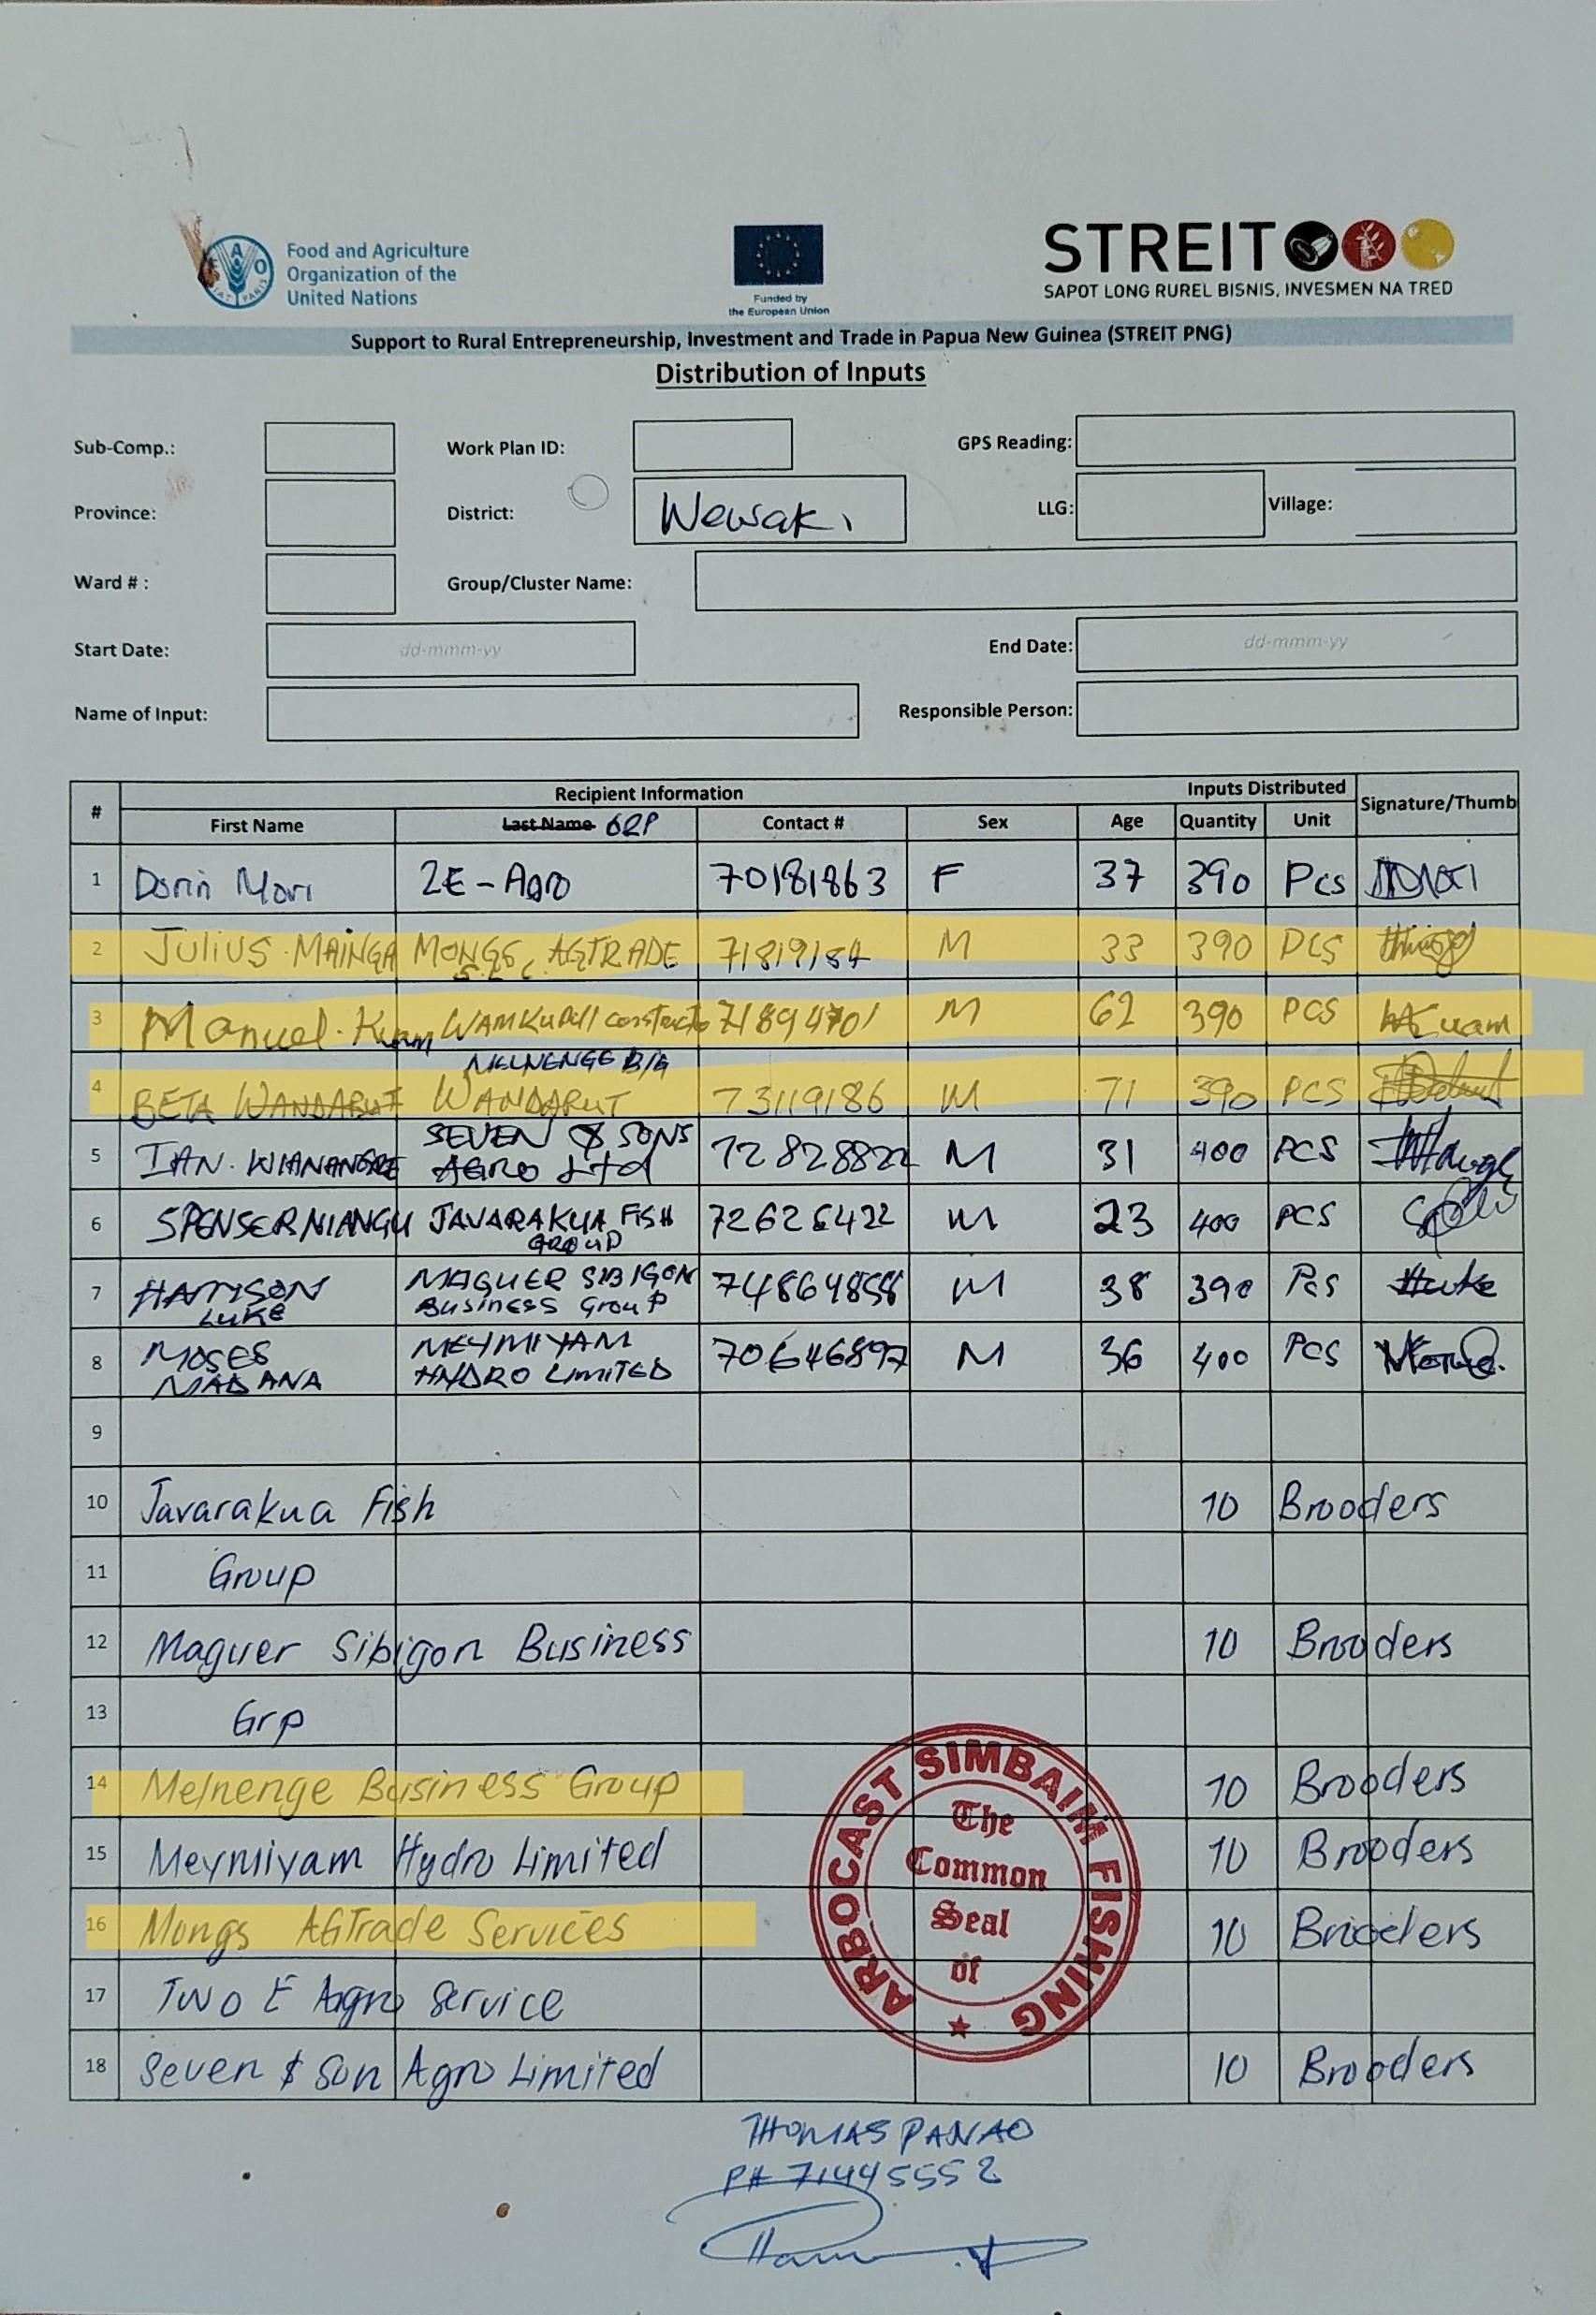 Food and Agriculture
Organization of the
United Nations
Funded by
the European Union
STREIT
SAPOT LONG RUREL BISNIS, INVESMEN NA TRED
Support to Rural Entrepreneurship, Investment and Trade in Papua New Guinea (STREIT PNG)
Distribution of Inputs
Sub-Comp.: Work Plan ID: GPS Reading:
Province: District: Wewak LLG: Village:
Ward # : Group/Cluster Name:
Start Date: dd-mmm-yy End Date: dd-mmm-yy
Name of Input: Responsible Person:
# Recipient Information Inputs Distributed Signature/Thumb
First Name Last Name GRP Contact # Sex Age Quantity Unit
1 Dorin Mori 2E-Agro 70181863 F 37 390 Pcs
2 JULIUS. MAINGA MONGS AGTRADE 71819184 M 33 390 PCS
3 Manuel. Kuam WAMKUDU 71894701 M 62 390 PCS Kuam
MELNENGE B/G
4 BETA WANDARUT WANDARUT 73119186 M 71 390 PCS
5 IAN. WIANANGRE SEVEN & SONS 72828822 M 31 400 PCS
AGRO Ltd
6 SPENSER NIANGU JAVARAKUA FISH 72626422 M 23 400 PCS
GROUP
7 HARRISON MAGUER SIBIGON 74864858 M 38 390 Pcs Huke
LUKE Business Group
8 MOSES MEYMIYAM 70646897 M 36 400 PCS
MADANA HYDRO LIMITED
9
10 Javarakua Fish 10 Brooders
11 Group
12 Maguer Sibigon Business 10 Brooders
13 Grp
14 Melnenge Business Group 10 Brooders
15 Meymiyam Hydro Limited 10 Brooders
16 Mongs AGTrade Services 10 Brooders
17 Two E Agro Service
18 Seven & Son Agro Limited 10 Brooders
ARBOCAST SIMBAIM FISHING
The
Common
Seal
of
THOMAS PANAO
PH 71445552